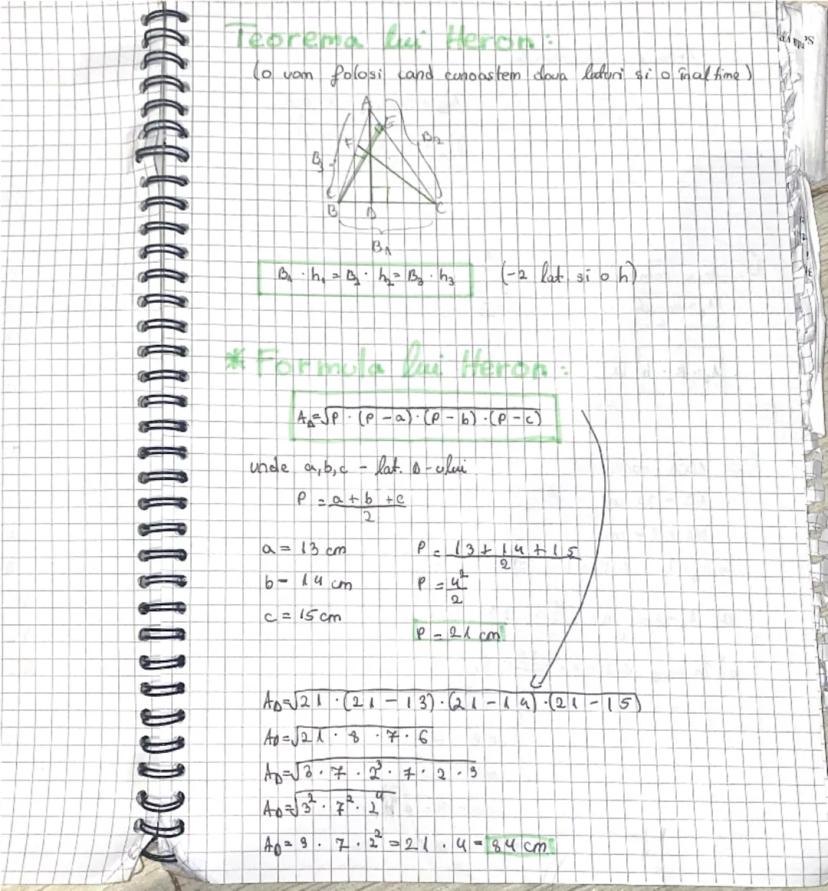 Teorema lui Heron:
(o vom folosi cand cunoastem doua laturi si o inaltime)
A
E
F
B2
B3
B
D
C
B1
B1 · h1 = B2 · h2 = B3 · h3 (-2 lat. si o h)
* Formula lui Heron:
A△=√p · (p - a) · (p - b) · (p - c)
unde a,b,c - lat. △-ului
P = a + b + c
2
a = 13 cm P = 13 + 14 + 15
2
b = 14 cm P = 42
2
c = 15 cm
P = 21 cm
A△=√21 · (21 - 13) · (21 - 14) · (21 - 15)
A△=√21 · 8 · 7 · 6
A△=√3 · 7 · 2³ · 7 · 2 · 3
A△=√3² · 7² · 2⁴
A△= 3 · 7 · 2² = 21 · 4 = 84 cm